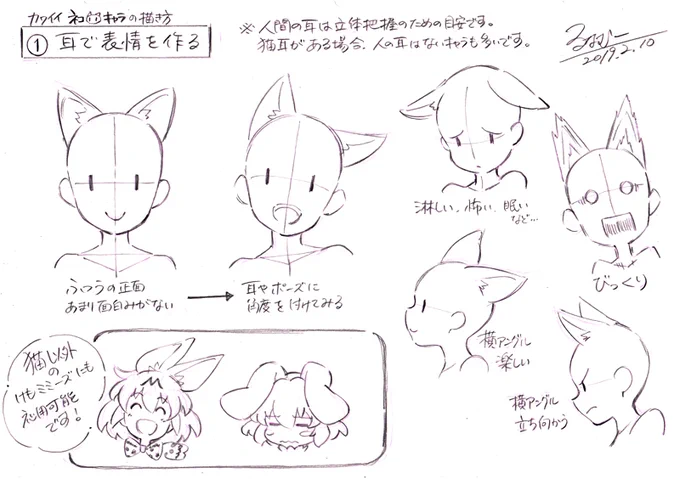 カワイイ ネコ耳キャラの描き方
① 耳で表情を作る
※ 人間の耳は立体把握のための目安です。
猫耳がある場合、人の耳はないキャラも多いです。
2019.2.10
ふつうの正面
あまり面白みがない
耳やポーズに
角度を付けてみる
淋しい、怖い、眠い
など…
びっくり
横アングル
楽しい
横アングル
立ち向かう
猫以外
の
けもミミーズにも
応用可能
です!